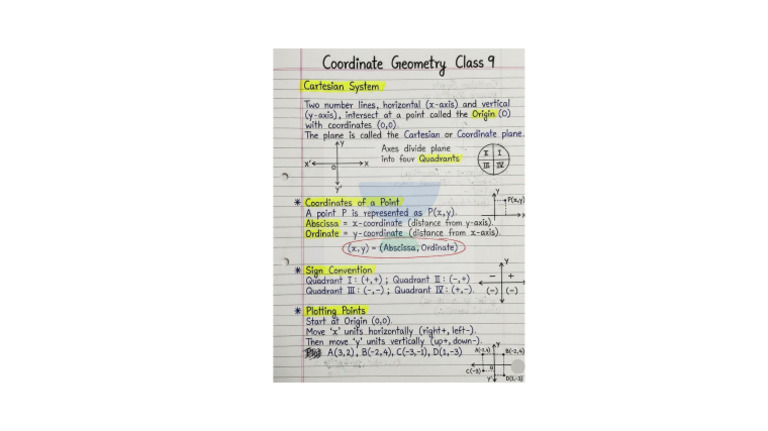 Coordinate Geometry Class 9
Cartesian System
Two number lines, horizontal (x-axis) and vertical
(y-axis), intersect at a point called the Origin (O)
with coordinates (0,0)
The plane is called the Cartesian or Coordinate plane.
Y
X' O X
Y'
Axes divide plane
into four Quadrants
II I
III IV
* Coordinates of a Point
A point P is represented as P(x,y).
Abscissa = x-coordinate (distance from y-axis).
Ordinate = y-coordinate (distance from x-axis).
(x,y) = (Abscissa, Ordinate)
Y
P(x,y)
X
* Sign Convention
Quadrant I : (+,+) ; Quadrant II : (-,+)
Quadrant III : (-,-) ; Quadrant IV : (+,-).
Y
- +
(-) (-)
* Plotting Points
Start at Origin (0,0)
Move 'x' units horizontally (right+, left-).
Then move 'y' units vertically (up+, down-).
A(3,2), B(-2,4), C(-3,-1), D(1,-3)
Y
A(-2,4) B(-2,4)
C(-3)
Y' D(1,-3)